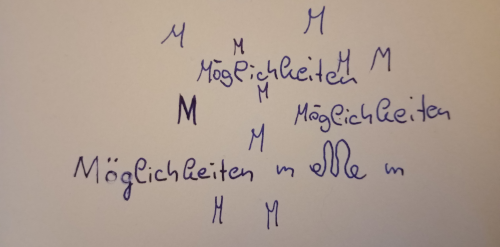 M M
M
Möglichkeiten M M
M
M Möglichkeiten
M
Möglichkeiten m m
M M